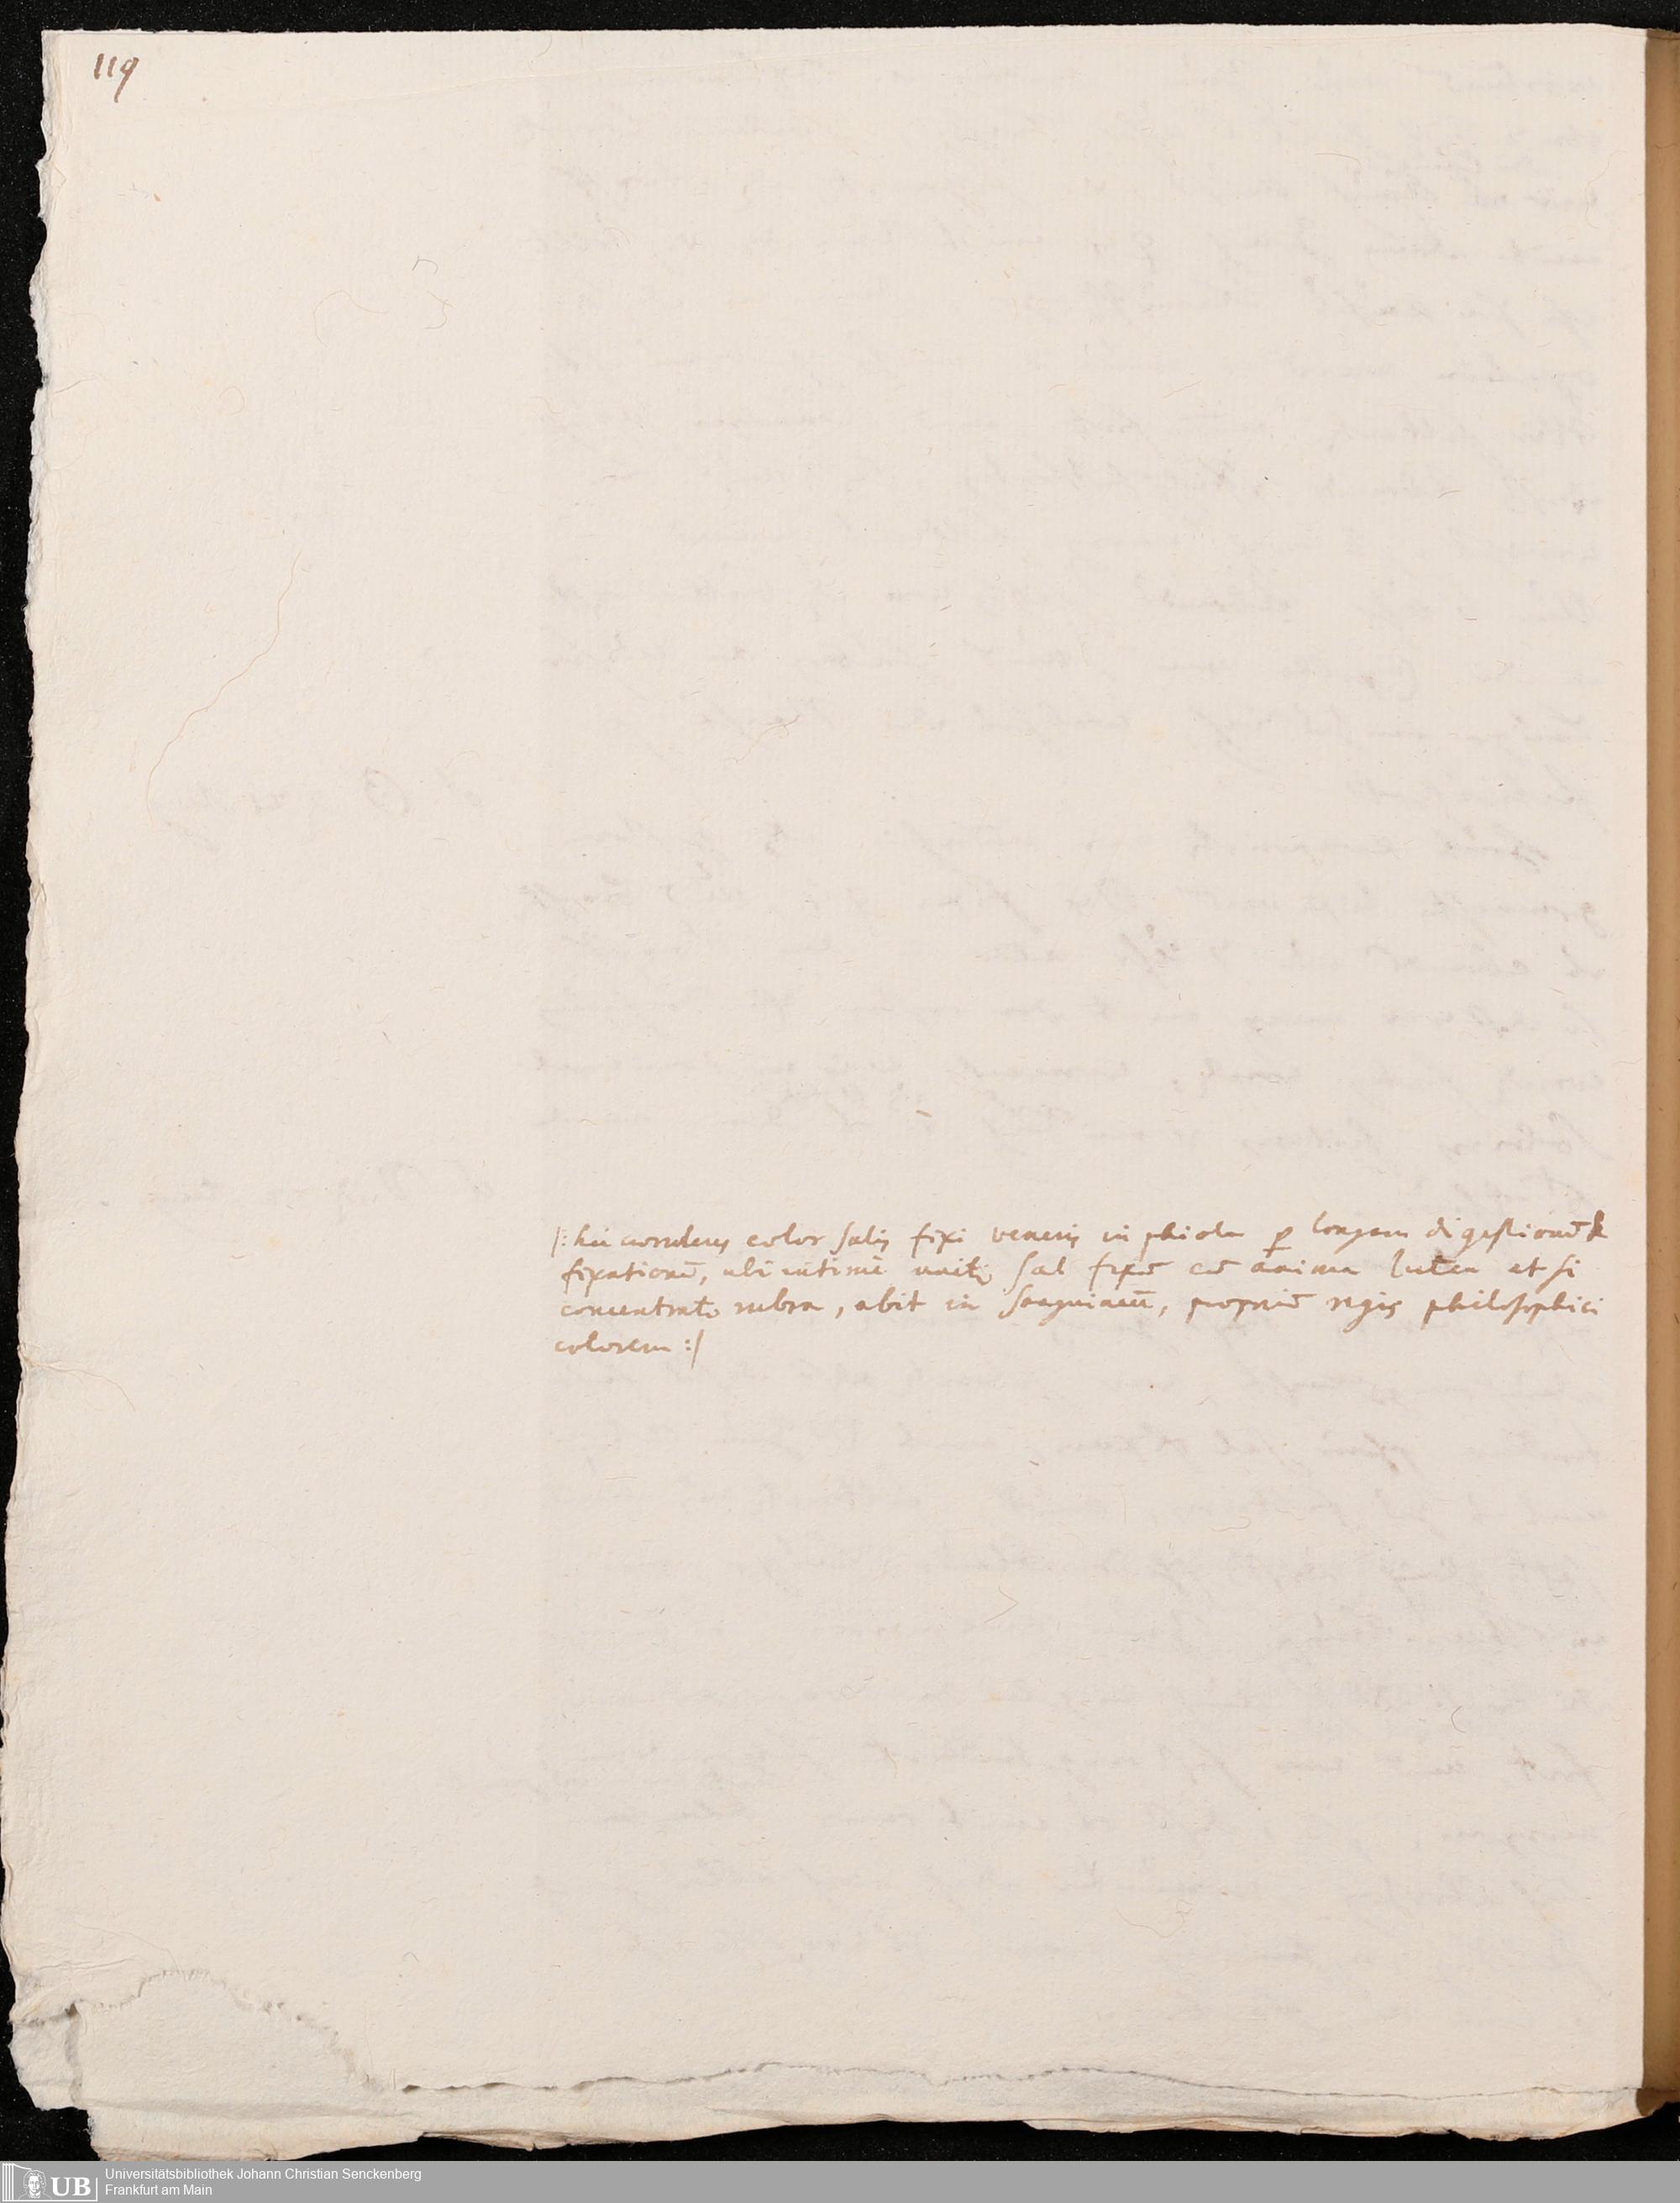 119
/: hic coeruleus color salis fixi veneris in phiola p longam digestionē &
fixationē, ubi intime unitꝰ sal fixū cū anima lutea et si
concentratꝰ rubra, abit in sanguineū, propriū regis philosophici
colorem :/
UB Universitätsbibliothek Johann Christian Senckenberg
Frankfurt am Main